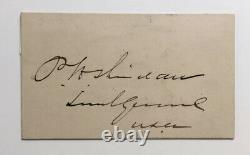 P H Sheridan
Lieut General
USA